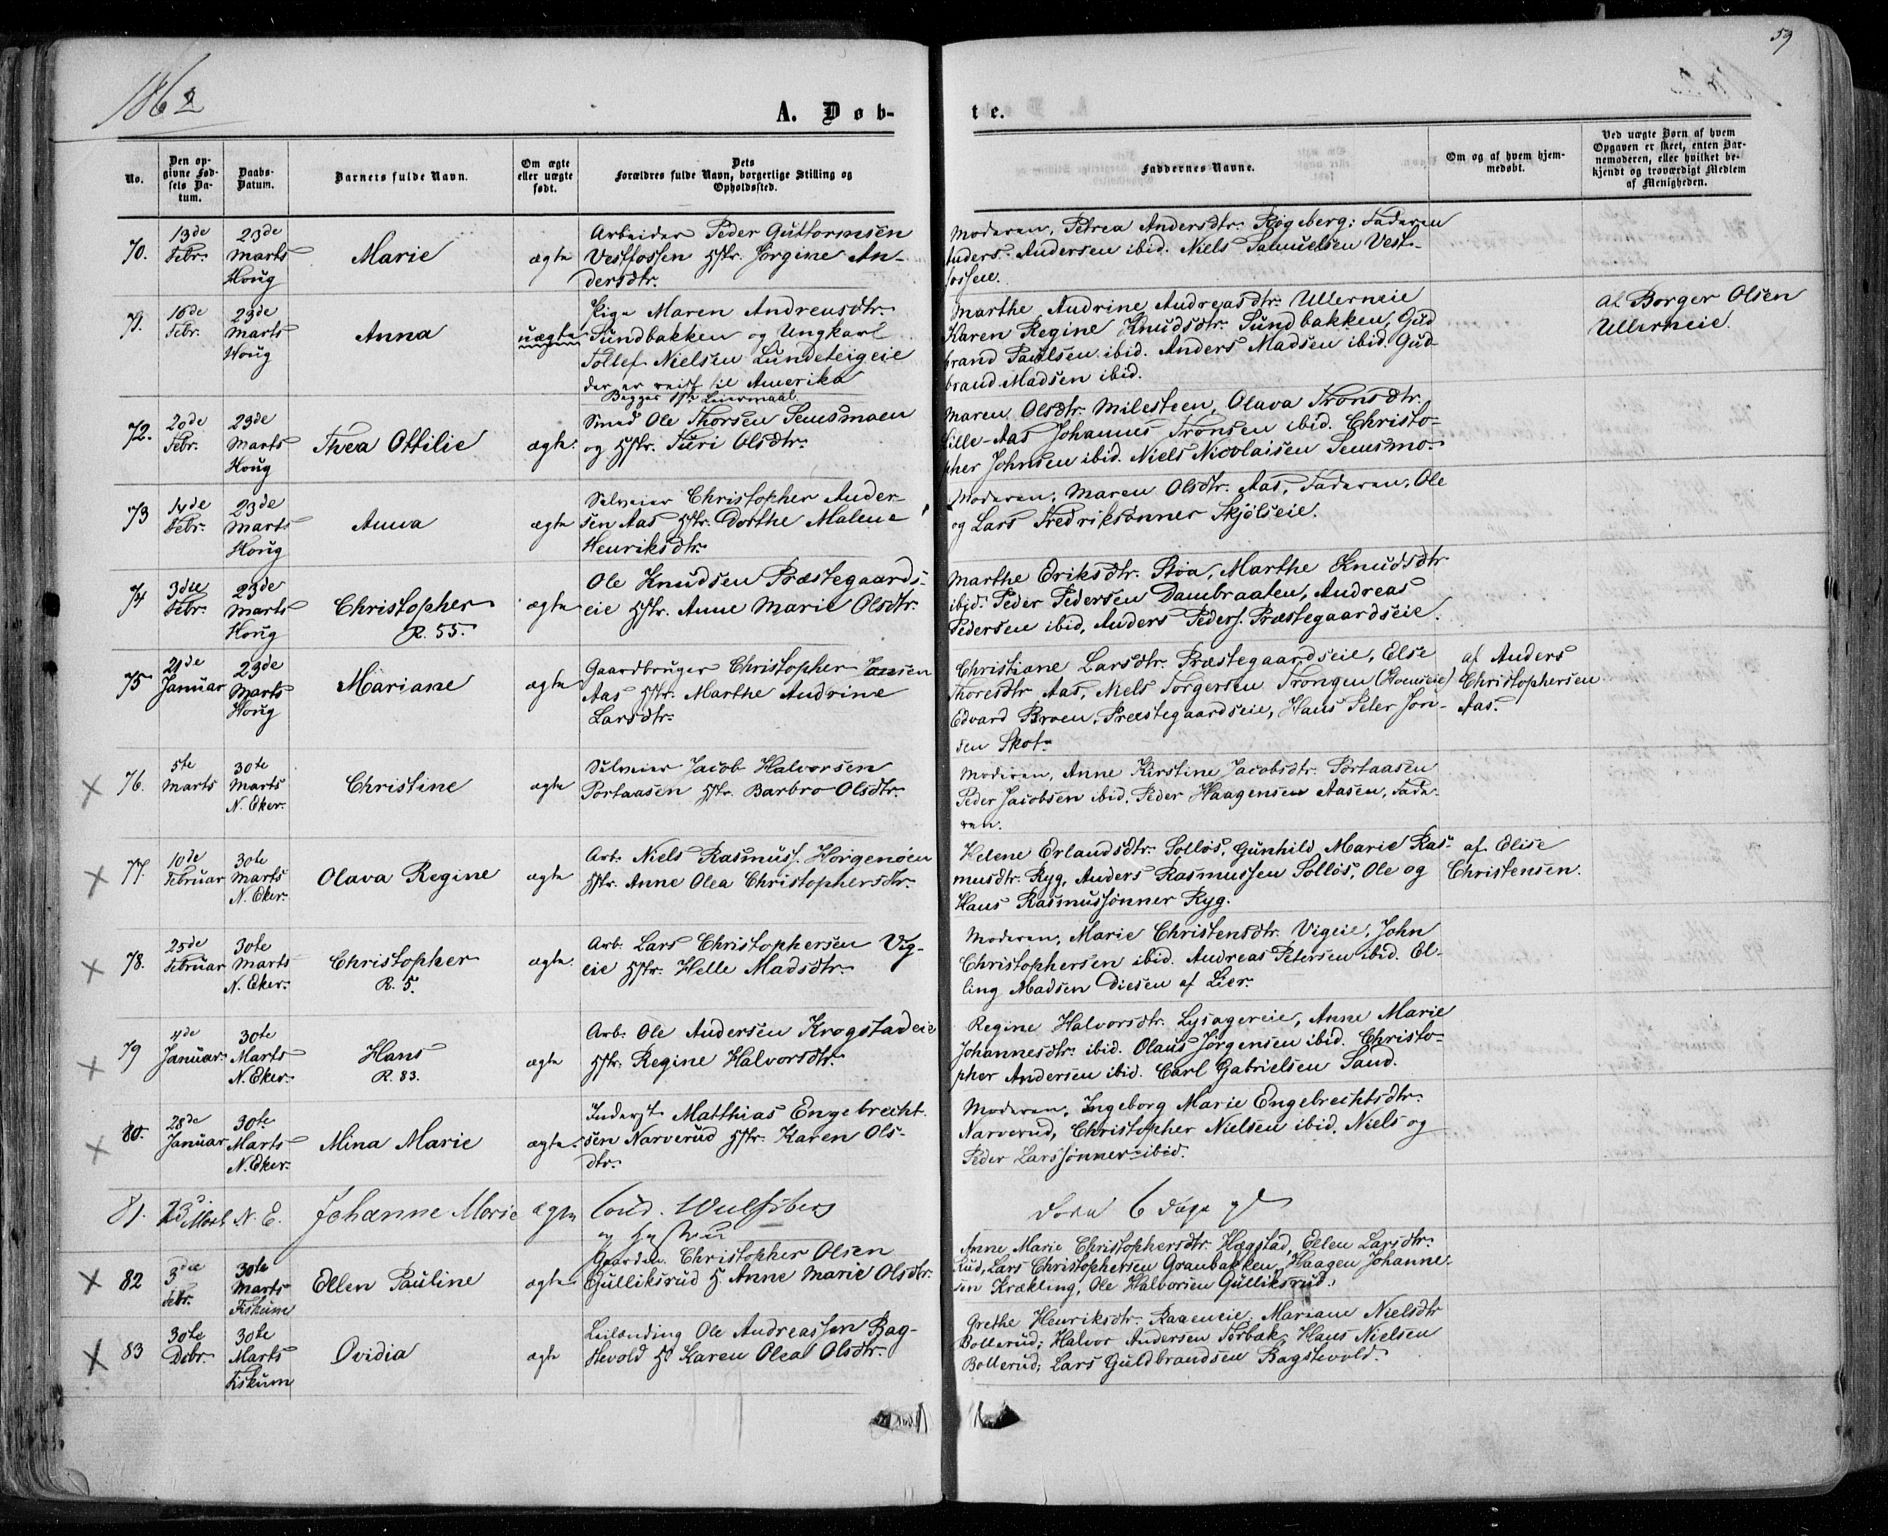 59
1862
A. Døb-
te.
No.
Den op-
givne Fød-
sels Da-
tum.
Daabs-
Datum.
Barnets fulde Navn.
Om ægte
eller uægte
født.
Dets
Forældres fulde Navn, borgerlige Stilling og
Opholdssted.
Faddernes Navne.
Om og af hvem hjem-
medøbt.
Ved uægte Børn af hvem
Opgaven er skeet, enten Bar-
nemoderen, eller hvilket be-
kjendt og troværdigt Medlem
af Menigheden.
70.
13de
Febr.
23de
Marts
Houg
Marie
ægte
Arbeider Peder Guttormsen
Vestfossen Hstr. Jørgine An-
dersdtr.
Moderen, Petrea Andersdtr. Røgeberg; Faderen
Anders Andersen ibid. Niels Samuelsen Vest-
fossen.
71.
16de
Febr.
23de
Marts
Houg
Anna
uægte
Pige Maren Andreasdtr.
Sundbakken og Ungkarl
Tollef Nielsen Lundeteigeie
der er reist til Amerika
Begges 1ste Leiermaal
Marthe Andrine Andreasdtr. Ullerneie
Karen Regine Knudsdtr. Sundbakken, Gud
brand Paulsen ibid. Anders Madsen ibid. Gud-
brand Madsen ibid.
af Borger Olsen
Ullerneie.
72.
20de
Febr.
23de
Marts
Houg
Thea Ottilie
ægte.
Smed Ole Thorsen Semsmoen
og Hstr. Turi Olsdtr.
Maren Olsdtr. Milesteen, Olava Tronsdtr.
Lille-Aas Johannes Tronsen ibid. Christo-
pher Johnsen ibid. Niels Nicolaisen Semsmo-
73
14de
Febr.
23de
Marts
Houg
Anna
ægte
Selveier Christopher Ander-
sen Aas Hstr. Dorthe Malene
Henriksdtr.
Moderen, Maren Olsdtr. Aas, Faderen, Ole
og Lars Fredriksønner Skjølseie.
74
3die
Febr.
23de
Marts
Houg
Christopher
R. 55.
ægte
Ole Knudsen Præstegaards-
eie Hstr. Anne Marie Olsdtr.
Marthe Eriksdtr. Stoa, Marthe Knudsdtr
ibid. Peder Pedersen Dambraaten, Andreas
Pedersen ibid, Anders Peders. Præstegaardseie.
75
21de
Januar
23de
Marts
Houg
Mariane
ægte
Gaardbruger Christopher Hansen
Aas Hstr. Marthe Andrine
Larsdtr.
Christiane Larsdtr. Præstegaardseie, Else
Thoresdtr Aas, Niels Torgersen Trongen
Edvard Broen, Præstegaardseie, Hans Peter Jon-
sen Skot-
af Anders
Christophersen
Aas.
76.
5te
Marts
30te
Marts
N. Eker.
Christine
ægte
Selveier Jacob Halvorsen
Portaasen Hstr. Barbro Olsdtr.
Moderen, Anne Kirstine Jacobsdtr. Portaasen
Peder Jacobsen ibid. Peder Haagensen Aasen, Fade-
ren.
77.
10de
Februar
30te
Marts
N. Eker.
Olava Regine
ægte
Arb. Niels Rasmuss. Horgenøen
Hstr. Anne Olea Christophersdtr.
Helene Erlandsdtr. Solløs, Gunhild Marie Ras-
musdtr. Ryg, Anders Rasmussen Solløs, Ole og
Hans Rasmussønner Ryg.
af Elise
Christensen.
78.
25de
Februar
30te
Marts
N. Eker.
Christopher
R. 5.
ægte.
Arb. Lars Christophersen Vig-
eie Hstr. Helle Madsdtr.
Moderen, Marie Christensdtr. Vigeie, John
Christophersen ibid. Andreas Petersen ibid. El-
ling Madsen Diesen af Lier.
79
4de
Januar.
30te
Marts
N. Eker.
Hans
R. 83.
ægte
Arb. Ole Andersen Krogstadeie
Hstr. Regine Halvorsdtr.
Regine Halvorsdtr. Lysagereie, Anne Marie
Johannesdtr. ibid. Olaus Jørgensen ibid. Christo-
pher Andersen ibid. Carl Gabrielsen Sand.
80.
28de
Januar
30te
Marts
N. Eker.
Mina Marie
ægte.
Inderst Matthias Engebrecht
sen Narverud Hstr. Karen Ols-
dtr.
Moderen, Ingeborg Marie Engebrechtsdtr.
Narverud, Christopher Nielsen ibid. Niels og
Peder Larssønner ibid.
81.
23 d.
Mart
N. E.
Johanne Marie
ægte
Cand. Wulfsberg
og Hustru
6 Dage
82
3die
Febr.
30te
Marts
Fiskum
Ellen Pauline
ægte
Gaardm. Christopher Olsen
Gulliksrud H. Anne Marie Olsdtr.
Anne Marie Christophersdtr. Hægstad, Eelen Larsdtr.
Rud, Lars Christophersen Granbakken, Haagen Johanne-
sen Krækling, Ole Halvorsen Gulliksrud.
83
30te
Dcbr.
30te
Marts
Fiskum
Ovidia
ægte
Leilænding Ole Andreassen Bag-
stevold H. Karen Olea Olsdtr.
Grethe Henriksdtr. Raaeneie, Mariane Nielsdtr
Bollerud; Halvor Andersen Torbæk, Hans Nielsen
Bollerud; Lars Guldbrandsen Bagstevold.